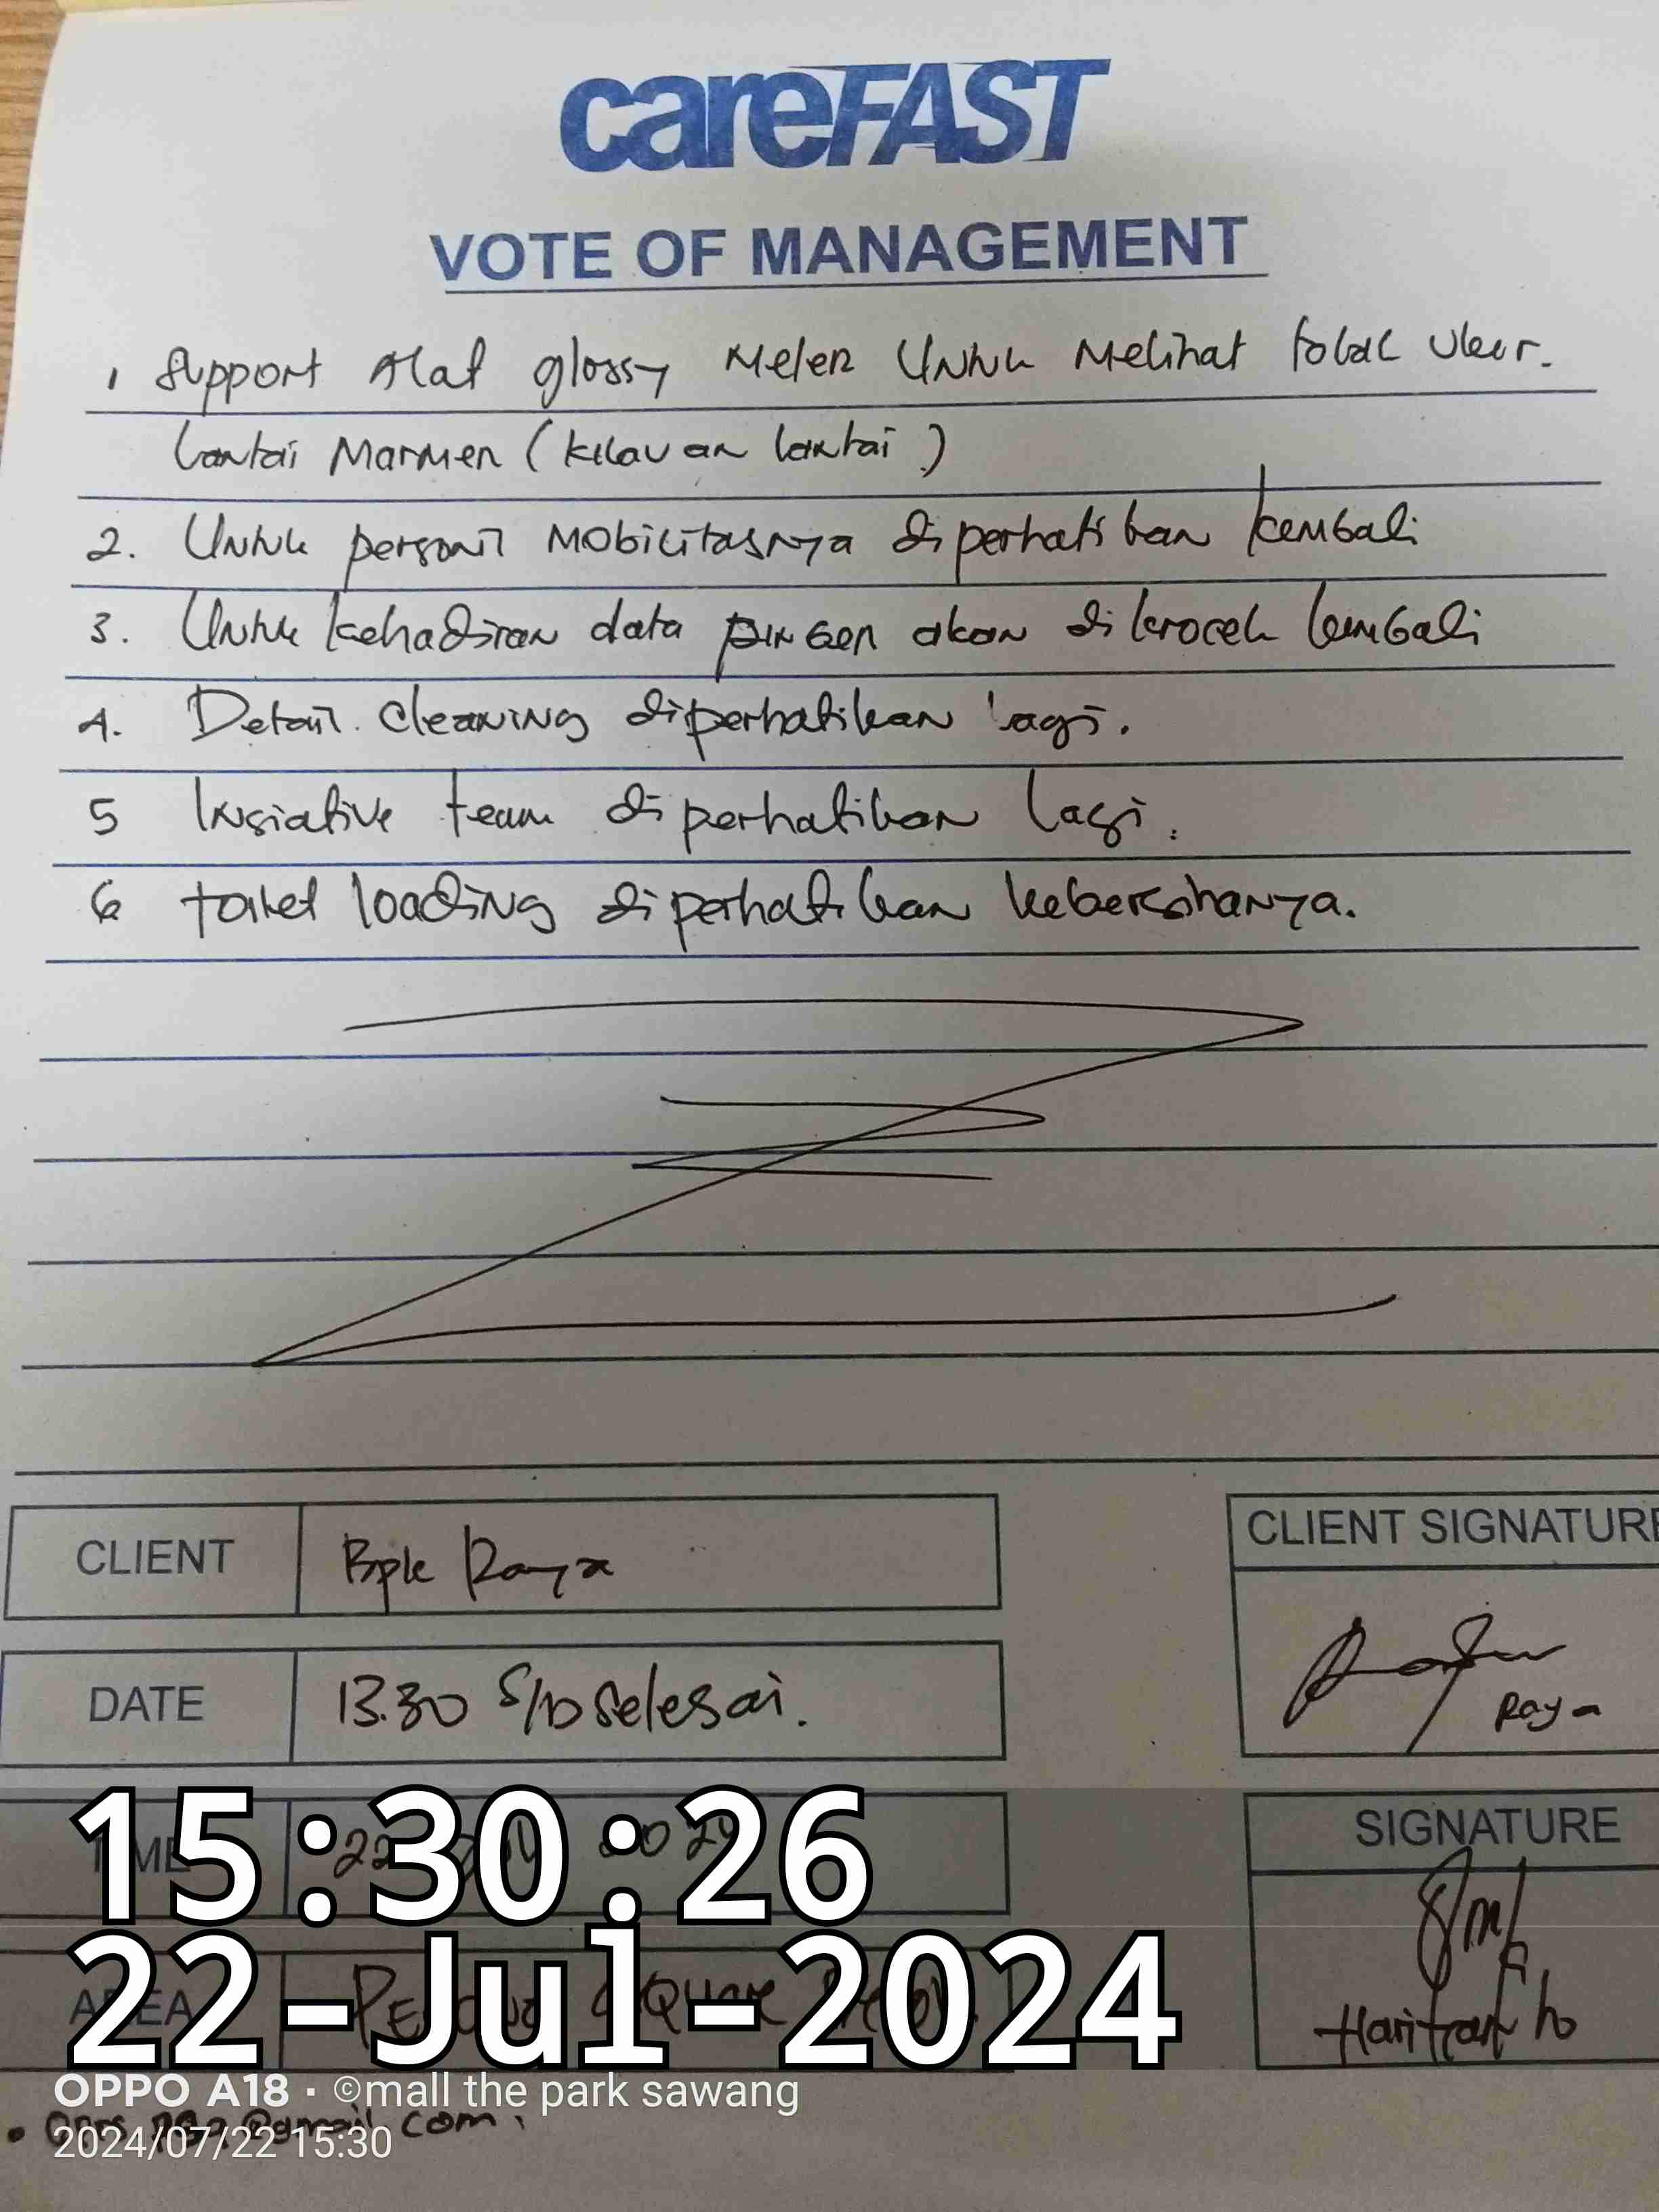 careFAST
VOTE OF MANAGEMENT
1 Support Alat glossy Meter Untuk Melihat tolak Ukur.
Lantai Marmer (kilauan lantai)
2. Untuk personil Mobilitasnya diperhatikan kembali
3. Untuk kehadiran data finger akan dikrocek kembali
4. Detail cleaning diperhatikan lagi.
5 Insiative team diperhatikan lagi.
6 toilet loading diperhatikan kebersihanya.
CLIENT
Bpk Raya
CLIENT SIGNATURE
DATE
13.30 S/D Selesai.
Raya
TIME
22 2024
SIGNATURE
15:30:26
22-Jul-2024
AREA
Haritranto
OPPO A18 · ©mall the park sawang
@gmail.com
2024/07/22 15:30